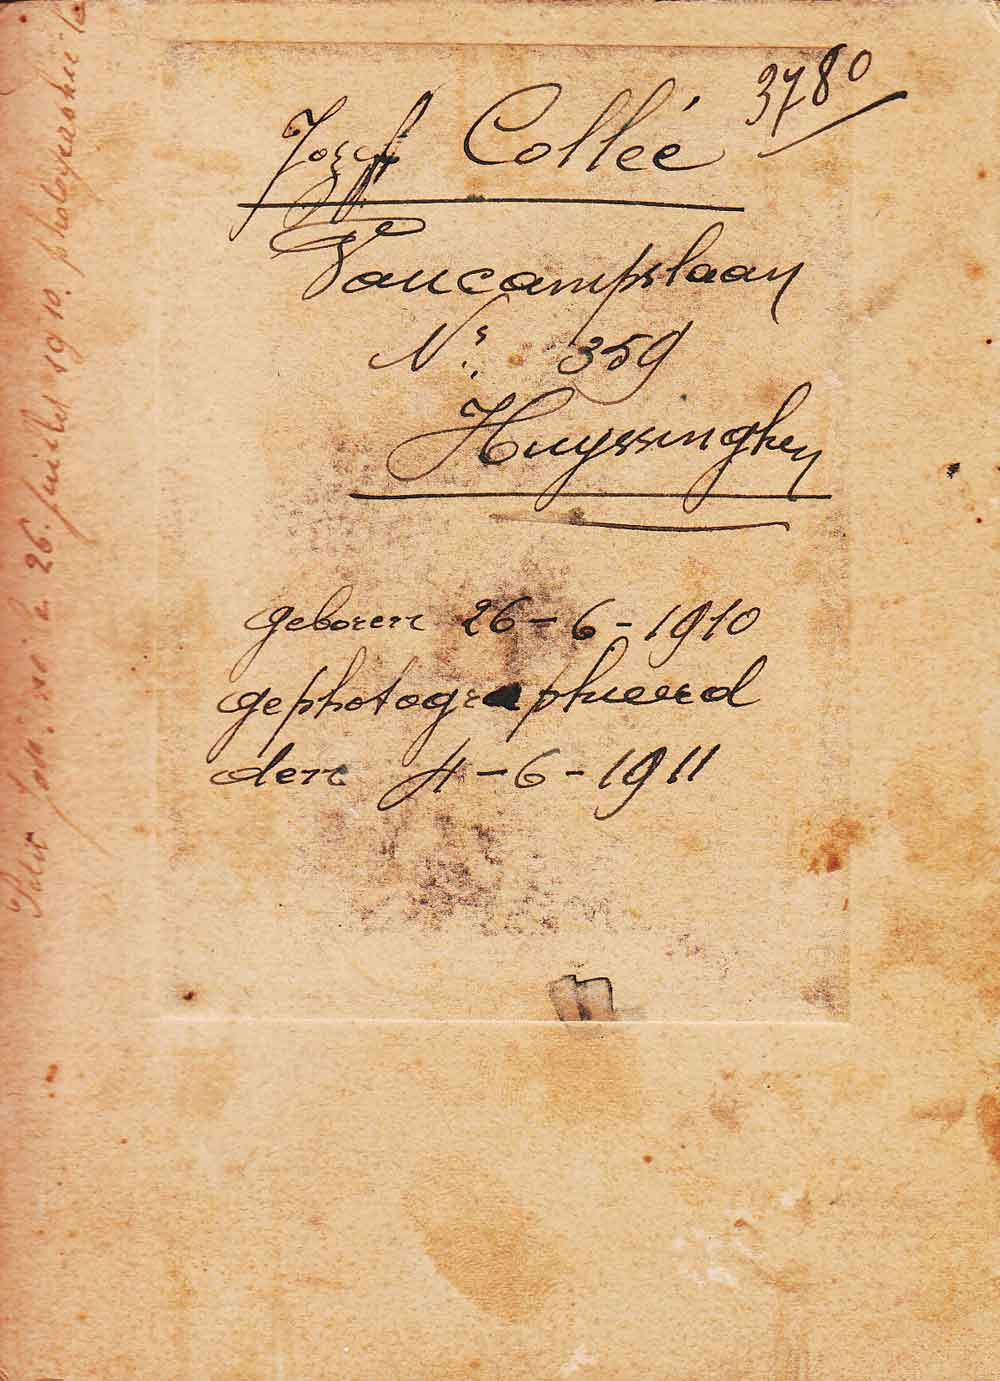 3780
Jozef Collée
Vaucampslaan
Nr. 359
Huyssinghen
geboren 26-6-1910
gephotographieerd
den 4-6-1911
Petit né le 26 juillet 1910. photographié le